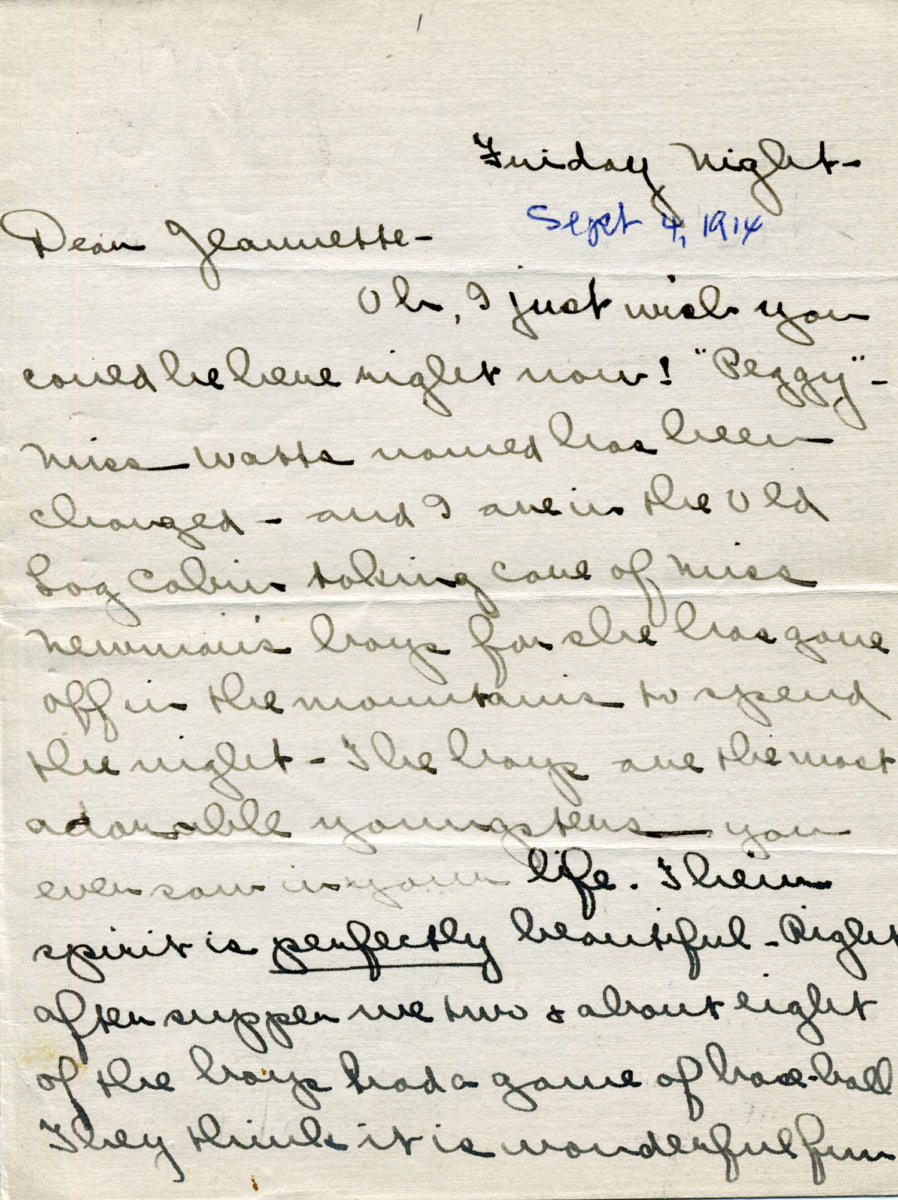 Friday Night-
Sept 4, 1914
Dear Jeannette-
Oh, I just wish you
could be here right now! "Peggy"-
Miss Watts named has been
changed - and I are in the Old
Log Cabin taking care of Miss
Newman's boys for she has gone
off in the mountains to spend
the night - The boys are the most
adorable youngsters you
ever saw in your life. Their
spirit is perfectly beautiful - Right
after supper we two & about eight
of the boys had a game of base-ball
They think it is wonderful fun